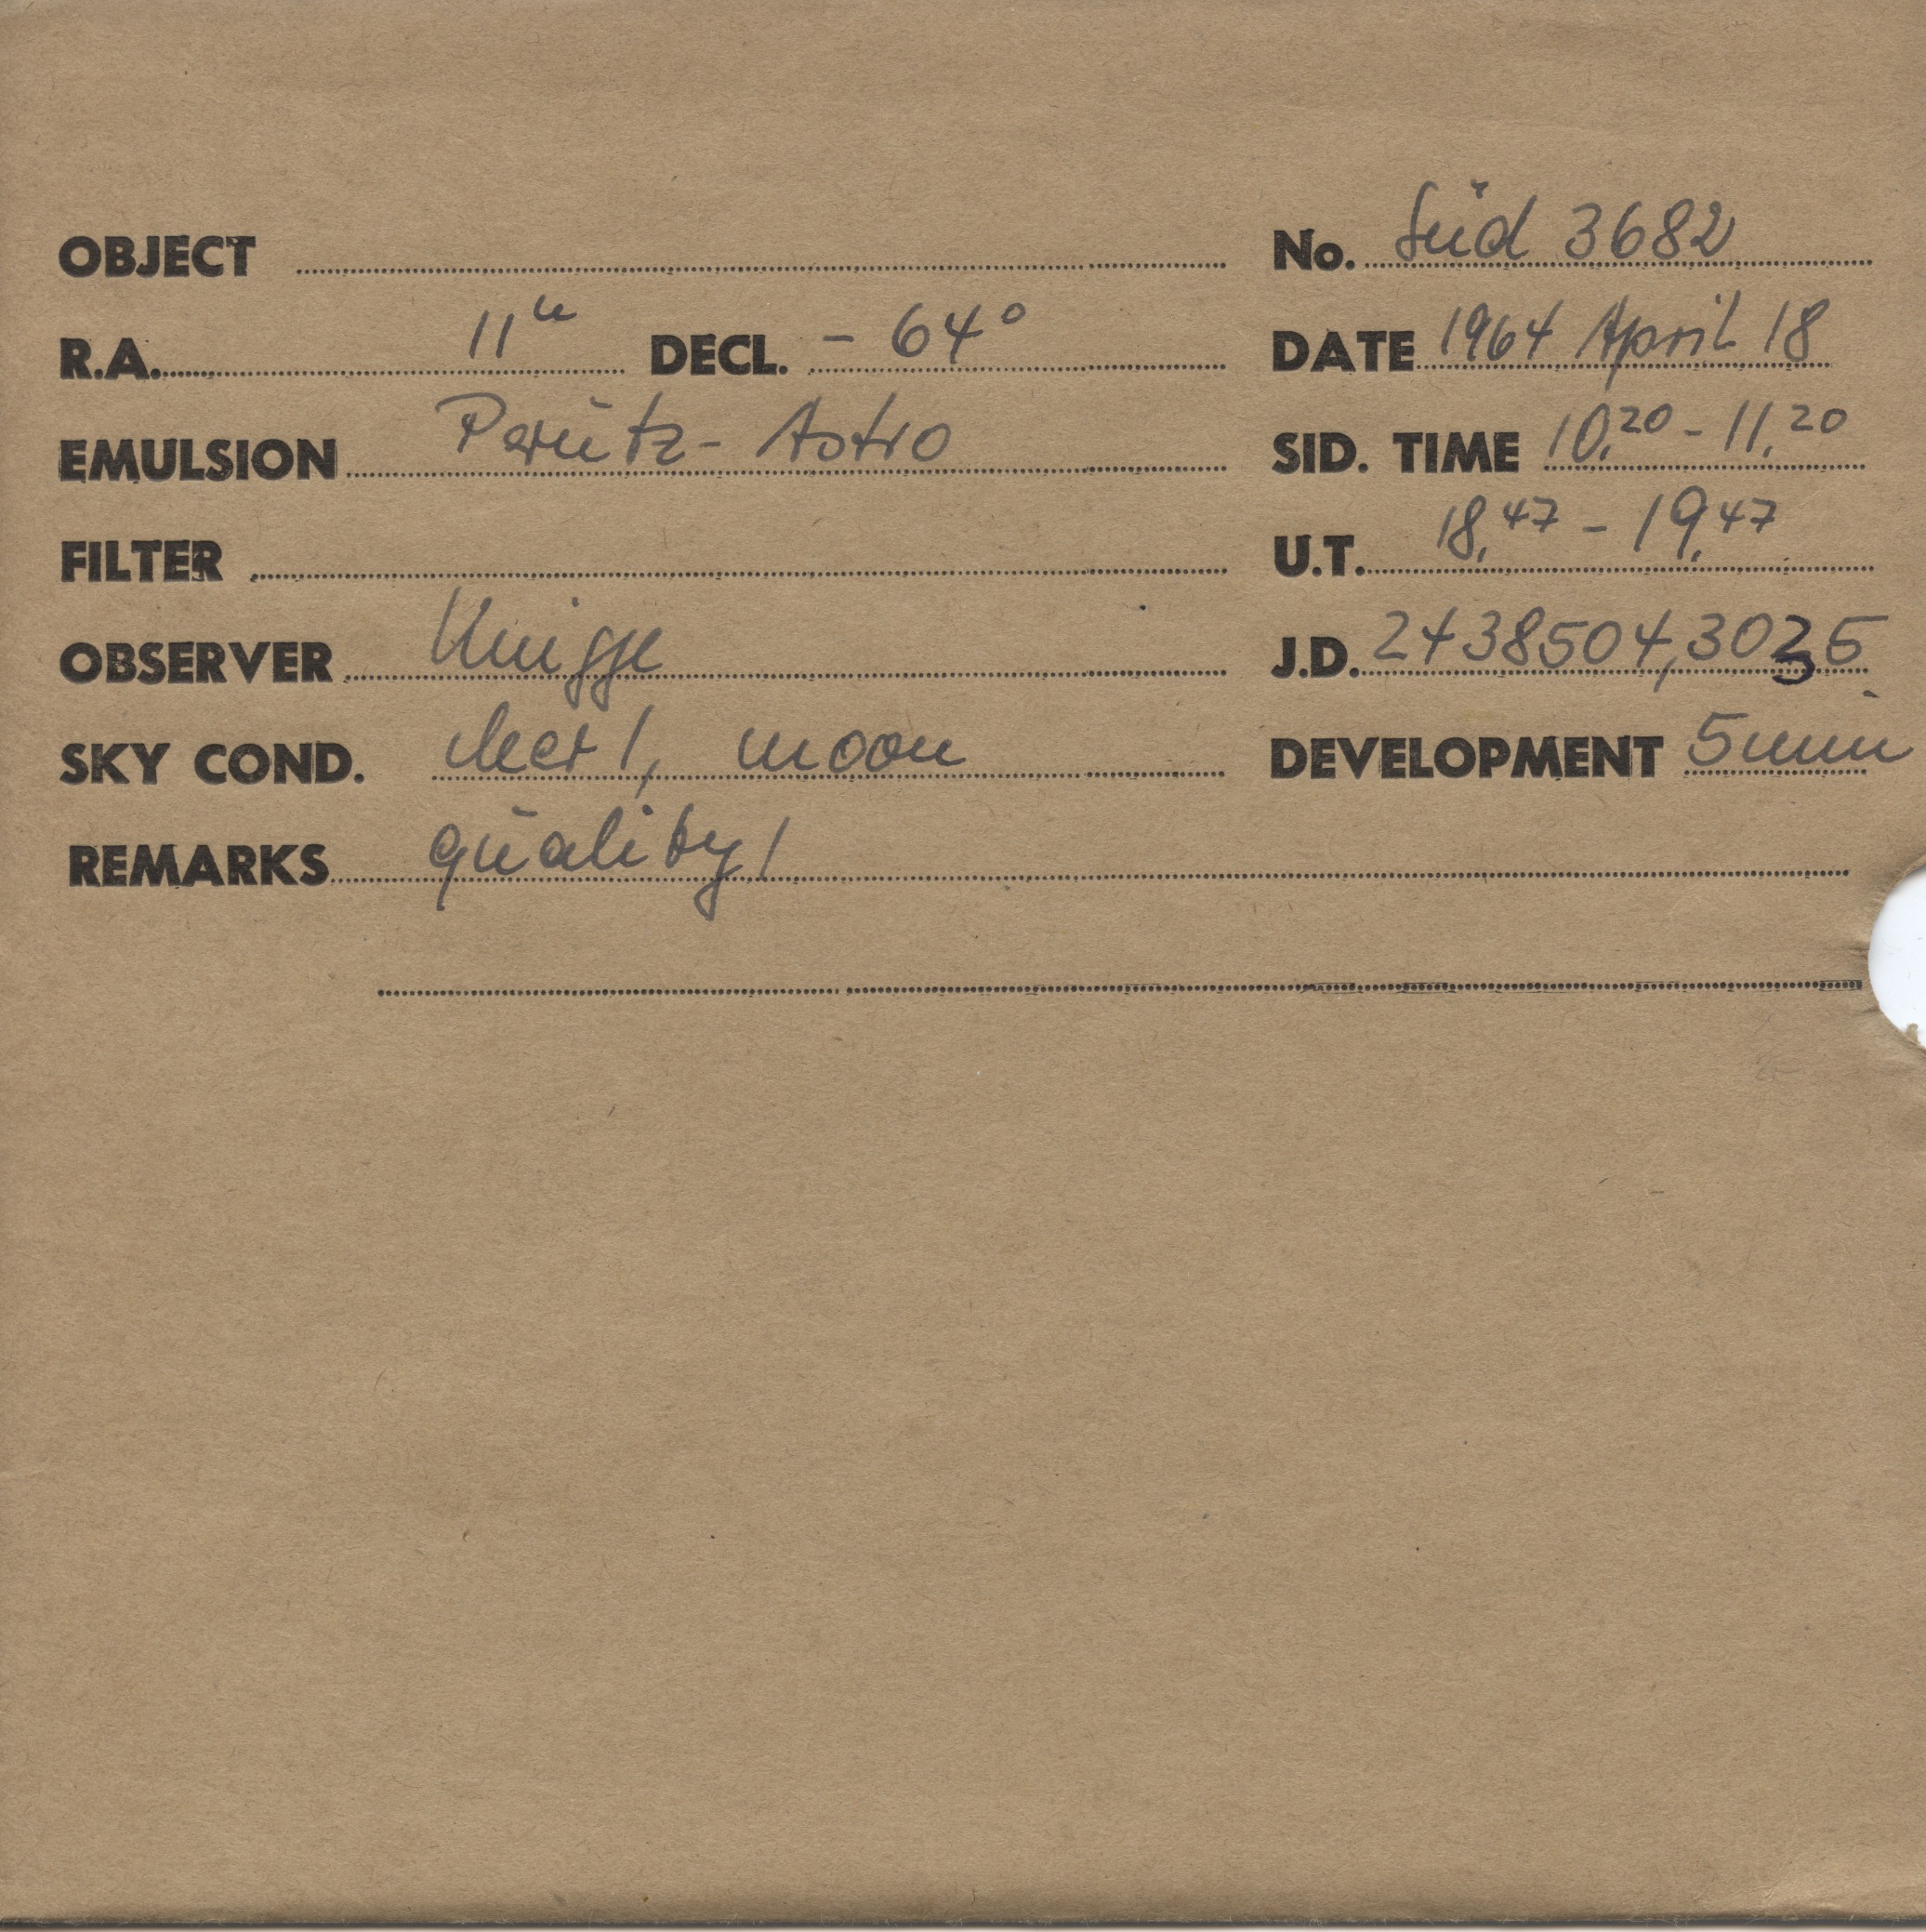 OBJECT No. Süd 3682
R.A. 11h DECL. - 64° DATE 1964 April 18
EMULSION Perutz - Astro SID. TIME 10,20 - 11,20
FILTER U.T. 18,47 - 19,47
OBSERVER Knigge J.D. 2438504,3035
SKY COND. clear 1, moon DEVELOPMENT 5 min
REMARKS quality 1